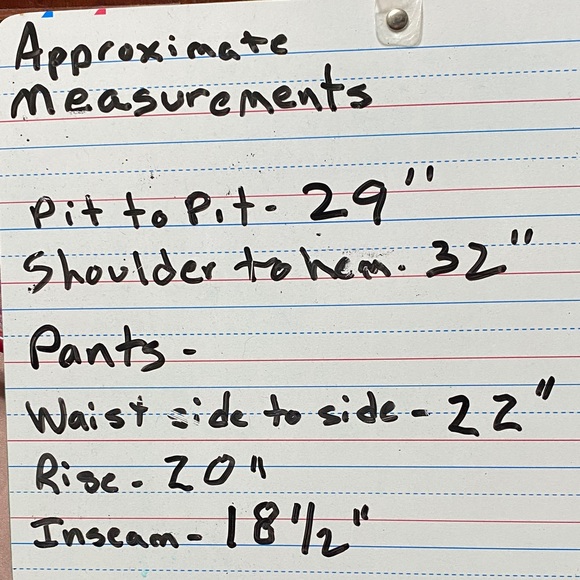 Approximate
Measurements
Pit to Pit - 29"
Shoulder to hem - 32"
Pants -
Waist side to side - 22"
Rise - 20"
Inseam - 18 1/2"